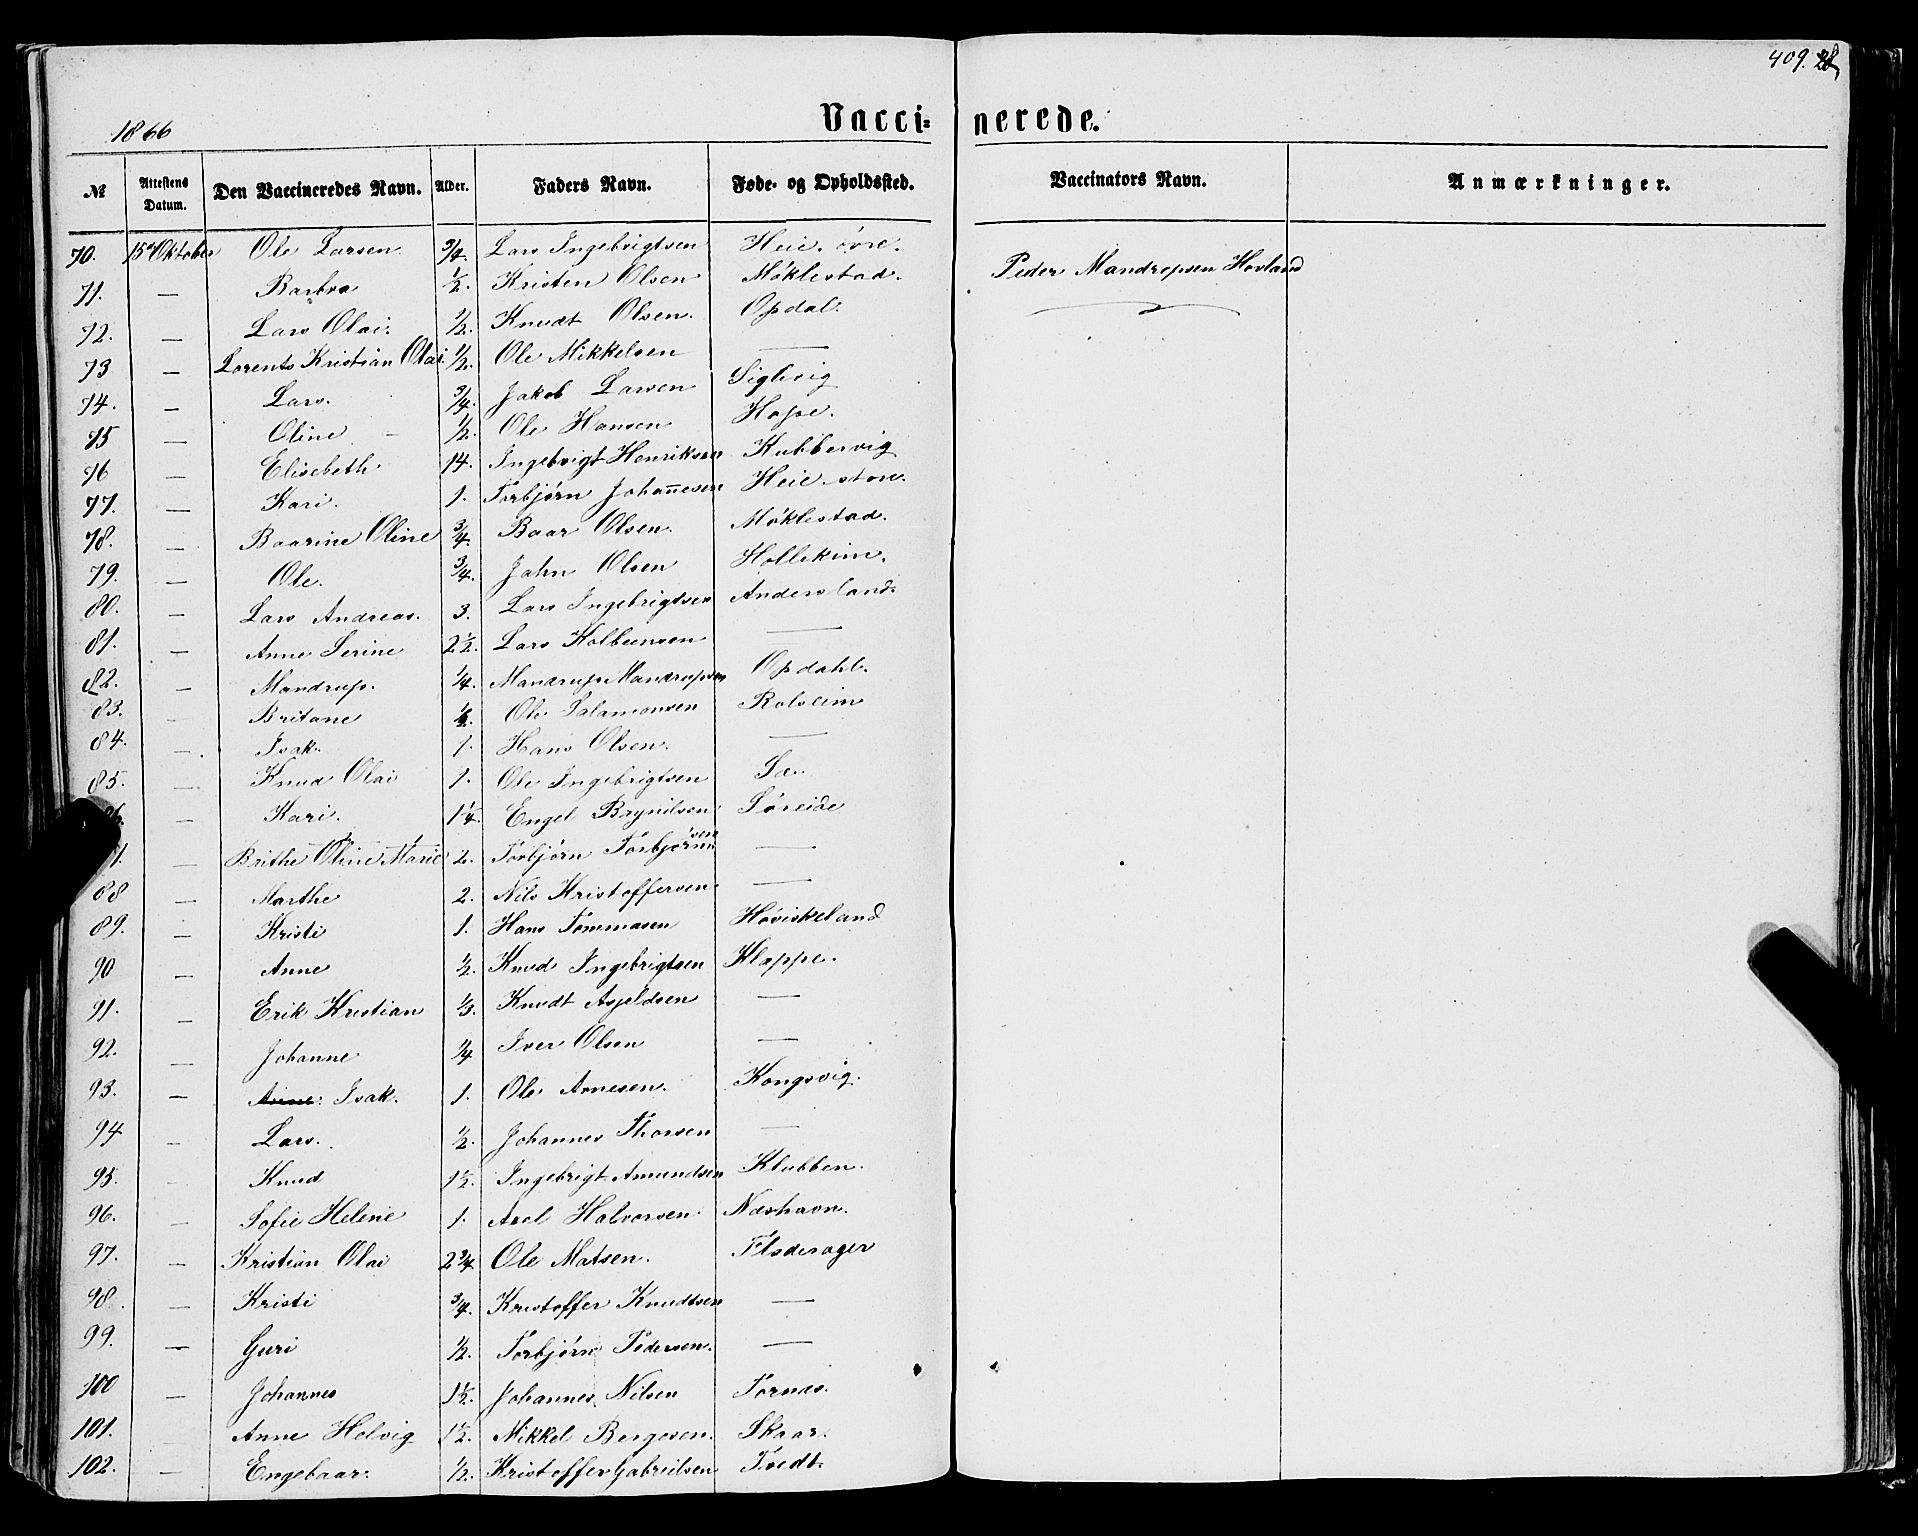 409.
1866
Vacci= nerede.
№ Attestens Datum. Den Vaccineredes Navn. Alder. Faders Navn. Føde- og Opholdssted. Vaccinators Navn. Anmærkninger.
70. 15de Oktober Ole Larsen 3/4. Lars Ingebrigtsen Heie. øvre. Peder Mandrupsen Hovland
71. — Barbra 1/2. Kristen Olsen Møklestad.
72. — Lars Olai. 1/2. Knudt Olsen. Opdal.
73 — Lorents Kristian Olai 1/2. Ole Mikkelsen —
74. — Lars. 3/4. Jakob Larsen Siglevig
75 — Oline — 1/2. Ole Hansen Hope.
76 — Elisebeth. 14. Ingebrigt Henriksen Kubbervig
77. — Kari. 1. Torbjørn Johannesen Heie. store.
78. — Baarine Oline 3/4. Baar Olsen. Møklestad.
79. — Ole. 3/4. Jahn Olsen Hollekim.
80. — Lars Andreas. 3. Lars Ingebrigtsen Andersland.
81. — Anne Serine 2 1/2. Lars Kolbeensen —
82. — Mandrup. 1/4. Mandrup Mandrupsen Opdahl.
83. — Britane Ole Salamonsen Rolseim
84. — Isak. 1. Hans Olsen. —
85. — Knud Olai 1. Ole Ingebrigtsen Sæ.
86. — Kari. 1 1/4. Engel Brynilsen Søreide
— Brithe Oline Marie 2. Torbjørn Torbjørnsen —
88 — Marthe 2. Nils Kristoffersen. —
89. — Kristi 1. Hans Tommasen Høviskeland
90 — Anne 1/2. Knud Ingebrigtsen Kloppe.
91. — Erik Kristian 1/3. Knudt Asjeldsen —
92. — Johanne 1/4 Iver Olsen —
93. — Anne. Isak. 1. Ole Arnesen. Kongsvig.
94 — Lars. 1/2. Johannes Thorsen —
95. — Knud 1 1/2. Ingebrigt Amundsen Klubben.
96. — Sofie Helene 1. Axel Halvorsen. Næshavn.
97. — Kristian Olai 2 3/4. Ole Matsen. Fladerager
98. — Kristi 3/4. Kristoffer Knudtsen —
99. — Guri 1/2. Torbjørn Pedersen. —
100 — Johannes 1 1/2. Johannes Nilsen Tornæs.
101. — Anne Helvig 1 1/2. Mikkel Bergesen. Skaar.
102. — Engebaar. 1/2. Kristoffer Gabreilsen Tvedt.